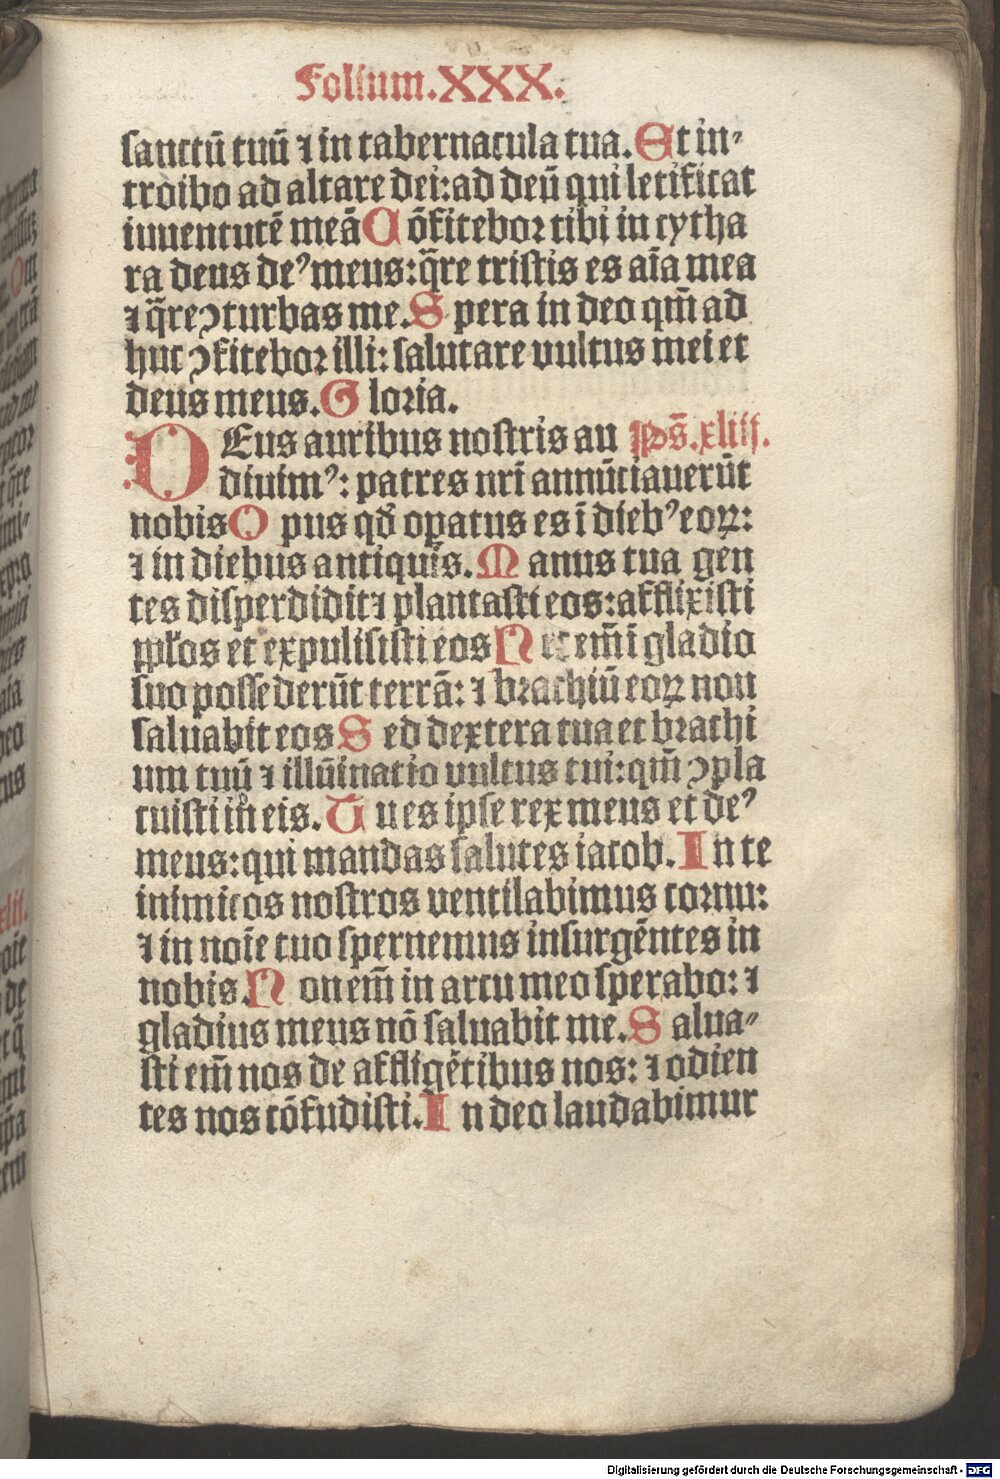 Folium.XXX.
sanctū tuū ⁊ in tabernacula tua. Et in-
troibo ad altare dei: ad deū qui letificat
iuuentutē meā Cōfitebor tibi in cytha
ra deus deꝰ meus: q̄re tristis es aīa mea
⁊ q̄re ↄturbas me. Spera in deo qm̄ ad
huc ↄfitebor illi: salutare vultus mei et
deus meus. Gloria.
DEus auribus nostris au Ps̄. xliij.
diuimꝰ: patres nrī annūciauerūt
nobis Opus qđ opatus es ī diebꝰ eoꝝ:
⁊ in diebus antiquis. Manus tua gen
tes disperdidit ⁊ plantasti eos: afflixisti
ppľos et expulisisti eos Nec em̄ ī gladio
suo possederūt terrā: ⁊ brachiū eoꝝ non
saluabit eos Sed dextera tua et brachi
um tuū ⁊ illūinatio vultus tui: qm̄ ↄpla
cuisti in eis. Tu es ipse rex meus et deꝰ
meus: qui mandas salutes iacob. In te
inimicos nostros ventilabimus cornu:
⁊ in noīe tuo spernemus insurgētes in
nobis. Non em̄ in arcu meo sperabo: ⁊
gladius meus nō saluabit me. Salua-
sti em̄ nos de affligētibus nos: ⁊ odien
tes nos cōfudisti. In deo laudabimur
Digitalisierung gefördert durch die Deutsche Forschungsgemeinschaft - DFG